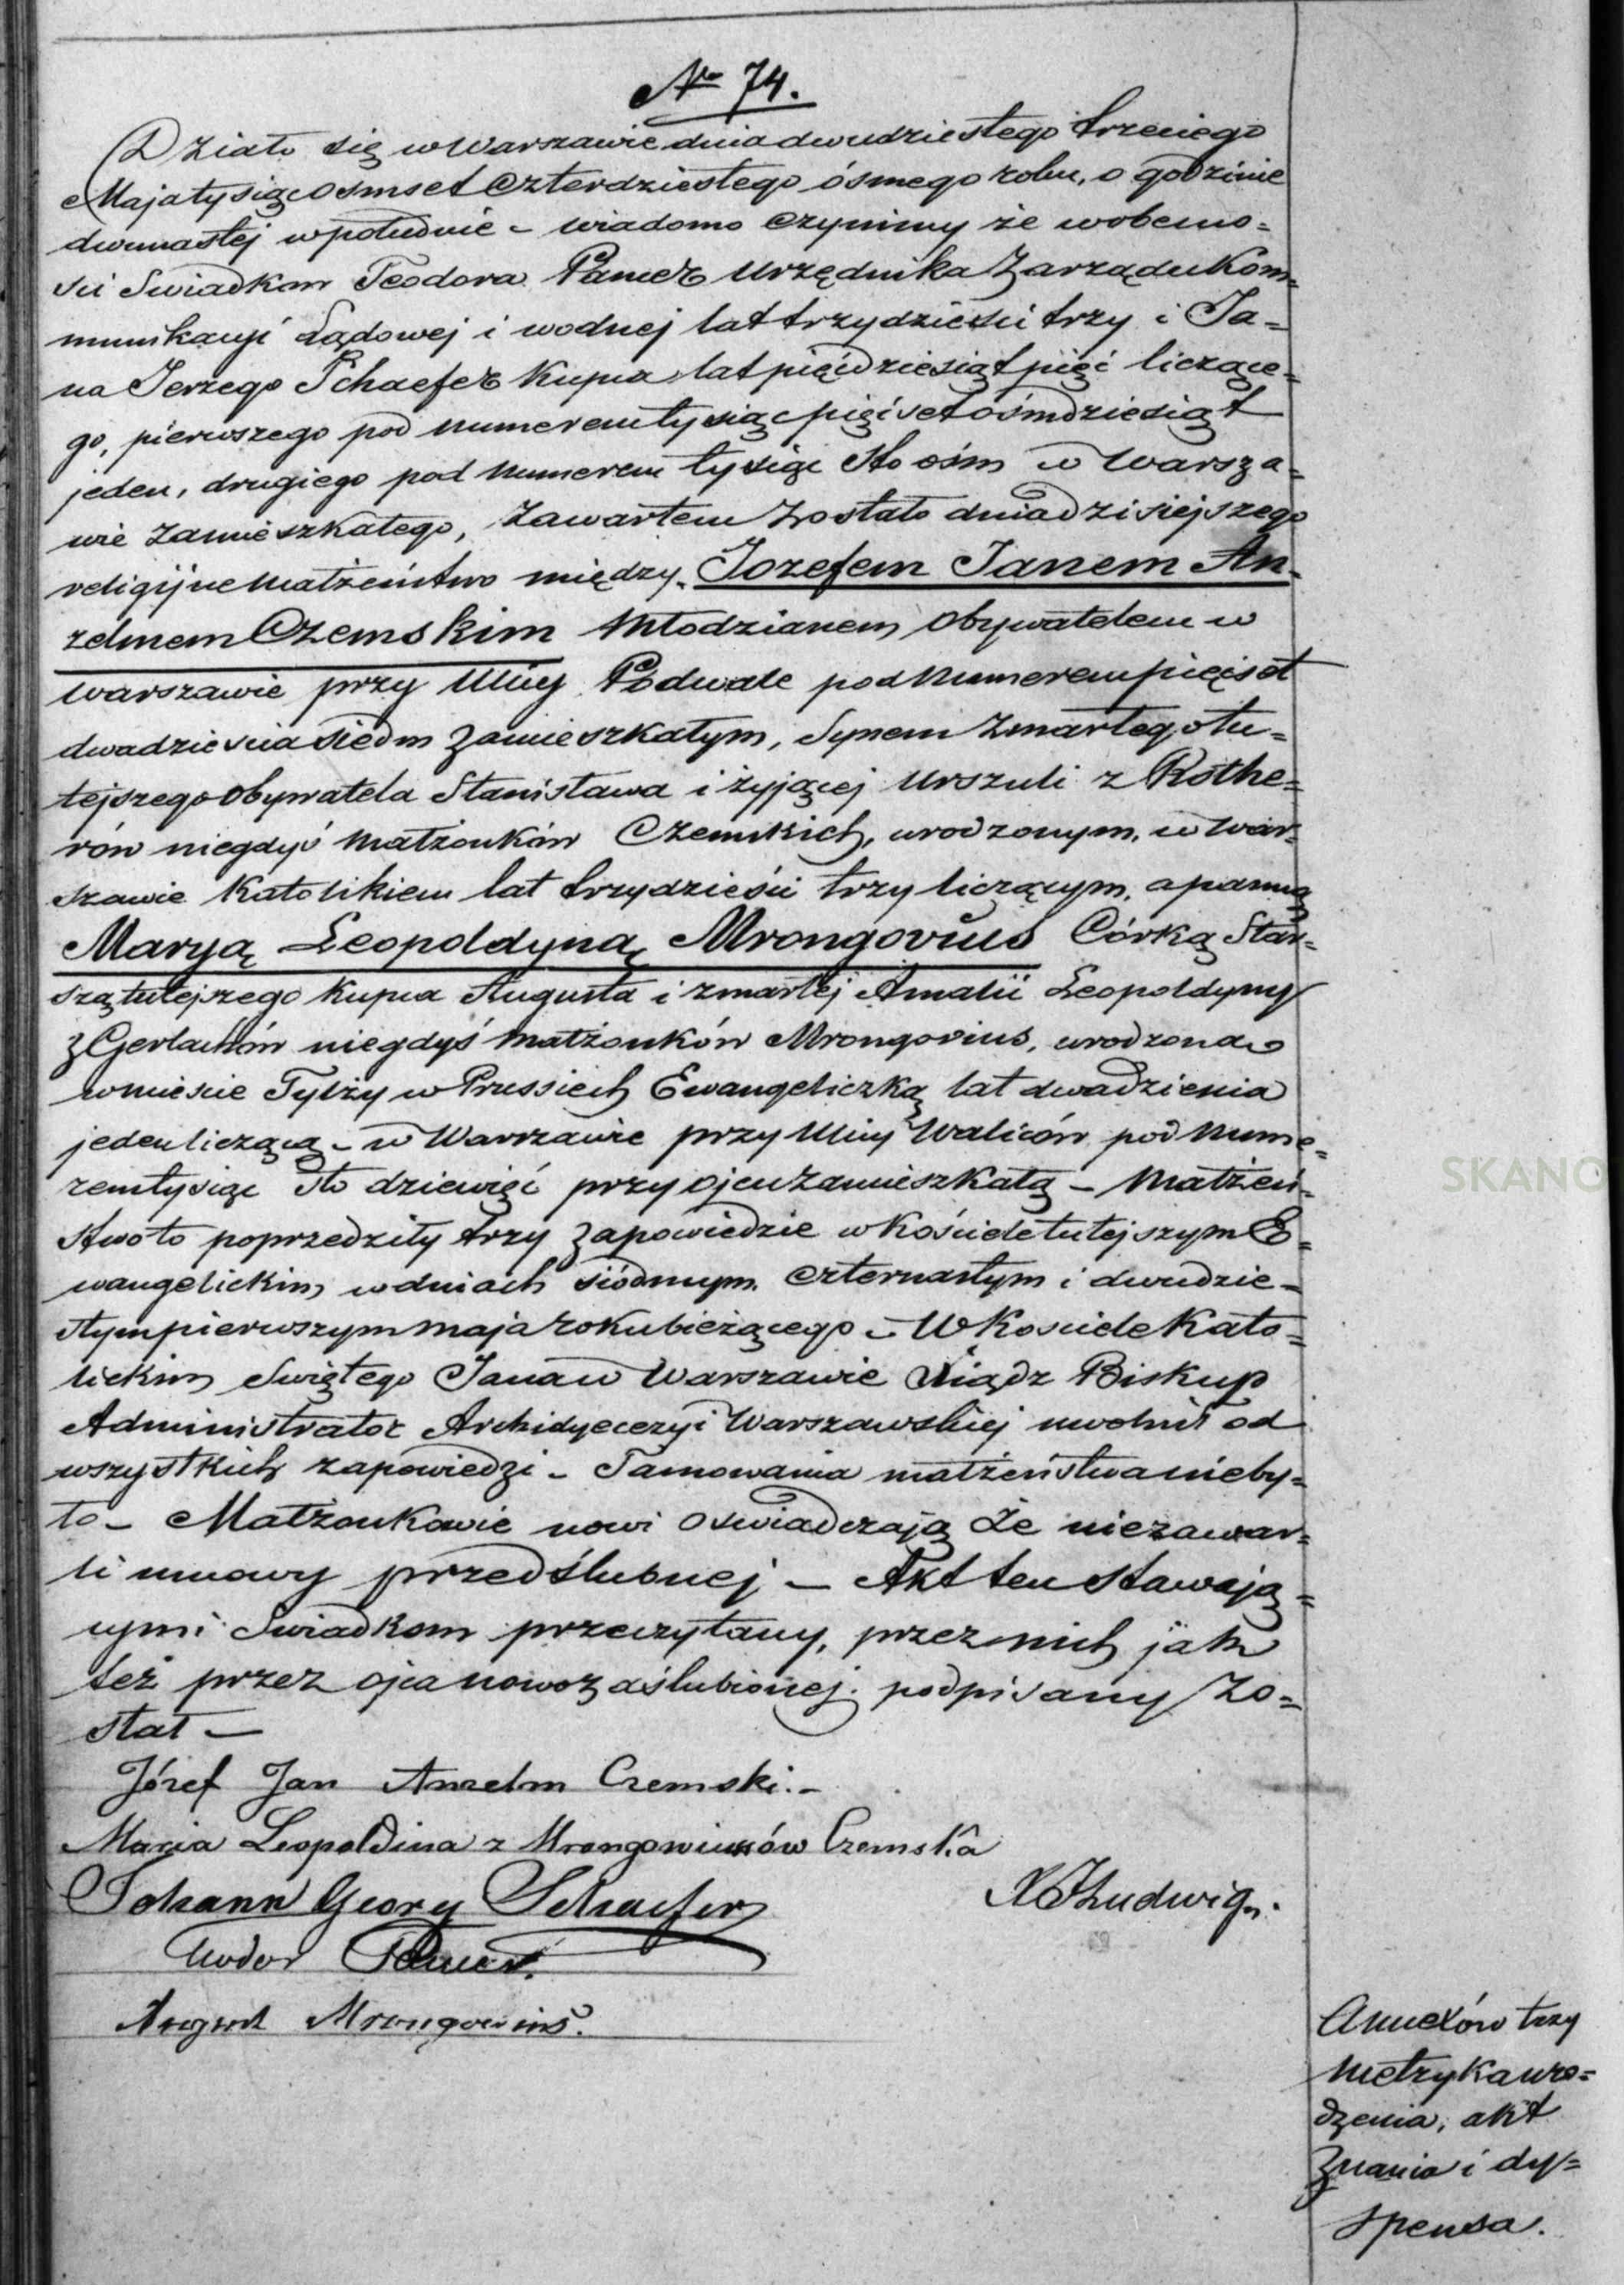 No 74.
Działo się w Warszawie dnia dwudziestego trzeciego
Maja tysiąc osmset czterdziestego ósmego roku, o godzinie
dwunastej w południe - wiadomo czynimy że w obecno=
ści Swiadków Teodora Pamer Urzędnika Zarządu Kom=
munikacyi Lądowej i wodnej lat trzydzieści trzy i Ja=
na Jerzego Schaefer Kupca lat pięćdziesiąt pięć liczące=
go, pierwszego pod Numerem tysiąc pięćset ośmdziesiąt
jeden, drugiego pod Numerem tysiąc sto ośm w Warsza=
wie zamieszkałego, zawartem zostało dnia dzisiejszego
religijne małżeństwo między Jozefem Janem An=
zelmem Czemskim Młodzianem Obywatelem w
Warszawie przy Ulicy Podwale pod Numerem pięćset
dwadzieścia siedm zamieszkałym, Synem zmarłego tu=
tejszego Obywatela Stanisława i żyjącej Urszuli z Rothe=
rów niegdyś Małżonków Czemskich, urodzonym w War=
szawie Katolikiem lat trzydzieści trzy liczącym, a panną
Maryą Leopoldyną Mrongovius Córką Star=
szą tutejszego Kupca Augusta i zmarłej Amalii Leopoldyny
z Gerlachów niegdyś Małżonków Mrongovius, urodzoną
w mieście Tylży w Prussiech Ewangeliczką lat dwadzieścia
jeden liczącą - w Warszawie przy Ulicy Waliców pod Nume=
rem tysiąc sto dziewięć przy ojcu zamieszkałą - Małżeń=
stwo to poprzedziły trzy zapowiedzie w Kościele tutejszym E=
wangelickim w dniach siódmym, czternastym i dwudzie=
stym pierwszym maja roku bieżącego - W Kościele Kato=
lickim Swiętego Jana w Warszawie Xiądz Biskup
Administrator Archidyecezyi Warszawskiej uwolnił od
wszystkich zapowiedzi - Tamowania małżeństwa nieby=
ło - Małżonkowie nowi oswiadczają że niezawar=
li umowy przedślubnej - Akt ten stawają=
cymi Swiadkom przeczytany, przez nich jak
też przez ojca nowozaślubionej podpisany zo=
stał -
Józef Jan Anzelm Czemski. -
Maria Leopoldina z Mrongowiusów Czemska
Johann Georg Schaefer
X J Ludwig.
Teodor Pamer.
August Mrongovius.
Annexów trzy
Metryka uro=
dzenia, akt
Znania i dy=
spensa.
SKANO